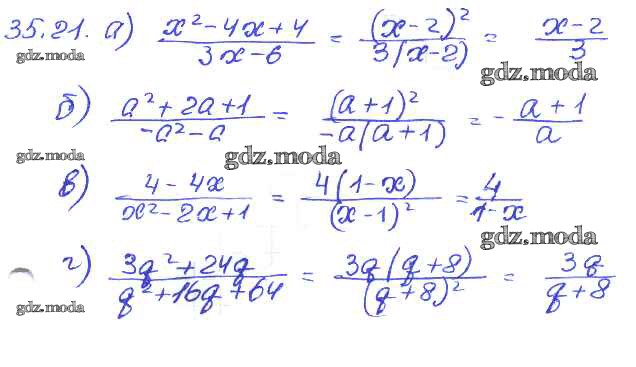 35.21. а) (x² - 4x + 4)/(3x - 6) = (x - 2)²/3(x - 2) = (x - 2)/3
gdz.moda
gdz.moda
б) (a² + 2a + 1)/(-a² - a) = (a + 1)²/-a(a + 1) = - (a + 1)/a
gdz.moda
gdz.moda
в) (4 - 4x)/(x² - 2x + 1) = 4(1 - x)/(x - 1)² = 4/(1 - x)
gdz.moda
г) (3q² + 24q)/(q² + 16q + 64) = 3q(q + 8)/(q + 8)² = 3q/(q + 8)
gdz.moda